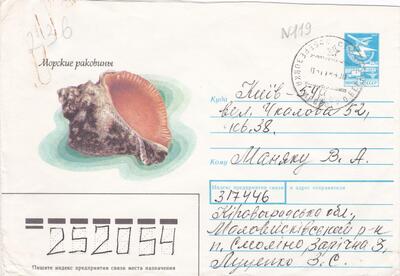 2426
N119
Морские раковины
Куда
Київ - 54,
вул. Чкалова 52,
кв. 38.
Кому
Маняку В. А.
Индекс предприятия связи и адрес отправителя
317446
Кіровоградська обл,
Маловисківський р-н
п. Смоліно,
Луценко З. С.
252054
Пишите индекс предприятия связи места назначения